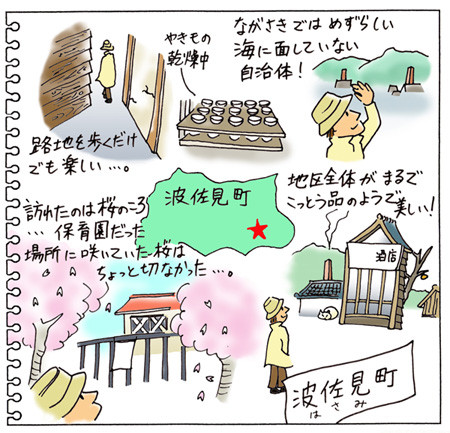 やきもの
乾燥中
ながさきでは めずらしい
海に面していない
自治体！
路地を歩くだけ
でも楽しい…。
波佐見町
地区全体が まるで
こっとう品のようで
美しい！
訪れたのは桜のころ
… 保育園だった
場所に咲いていた桜は
ちょっと切なかった…。
酒店
波佐見町
はさみ